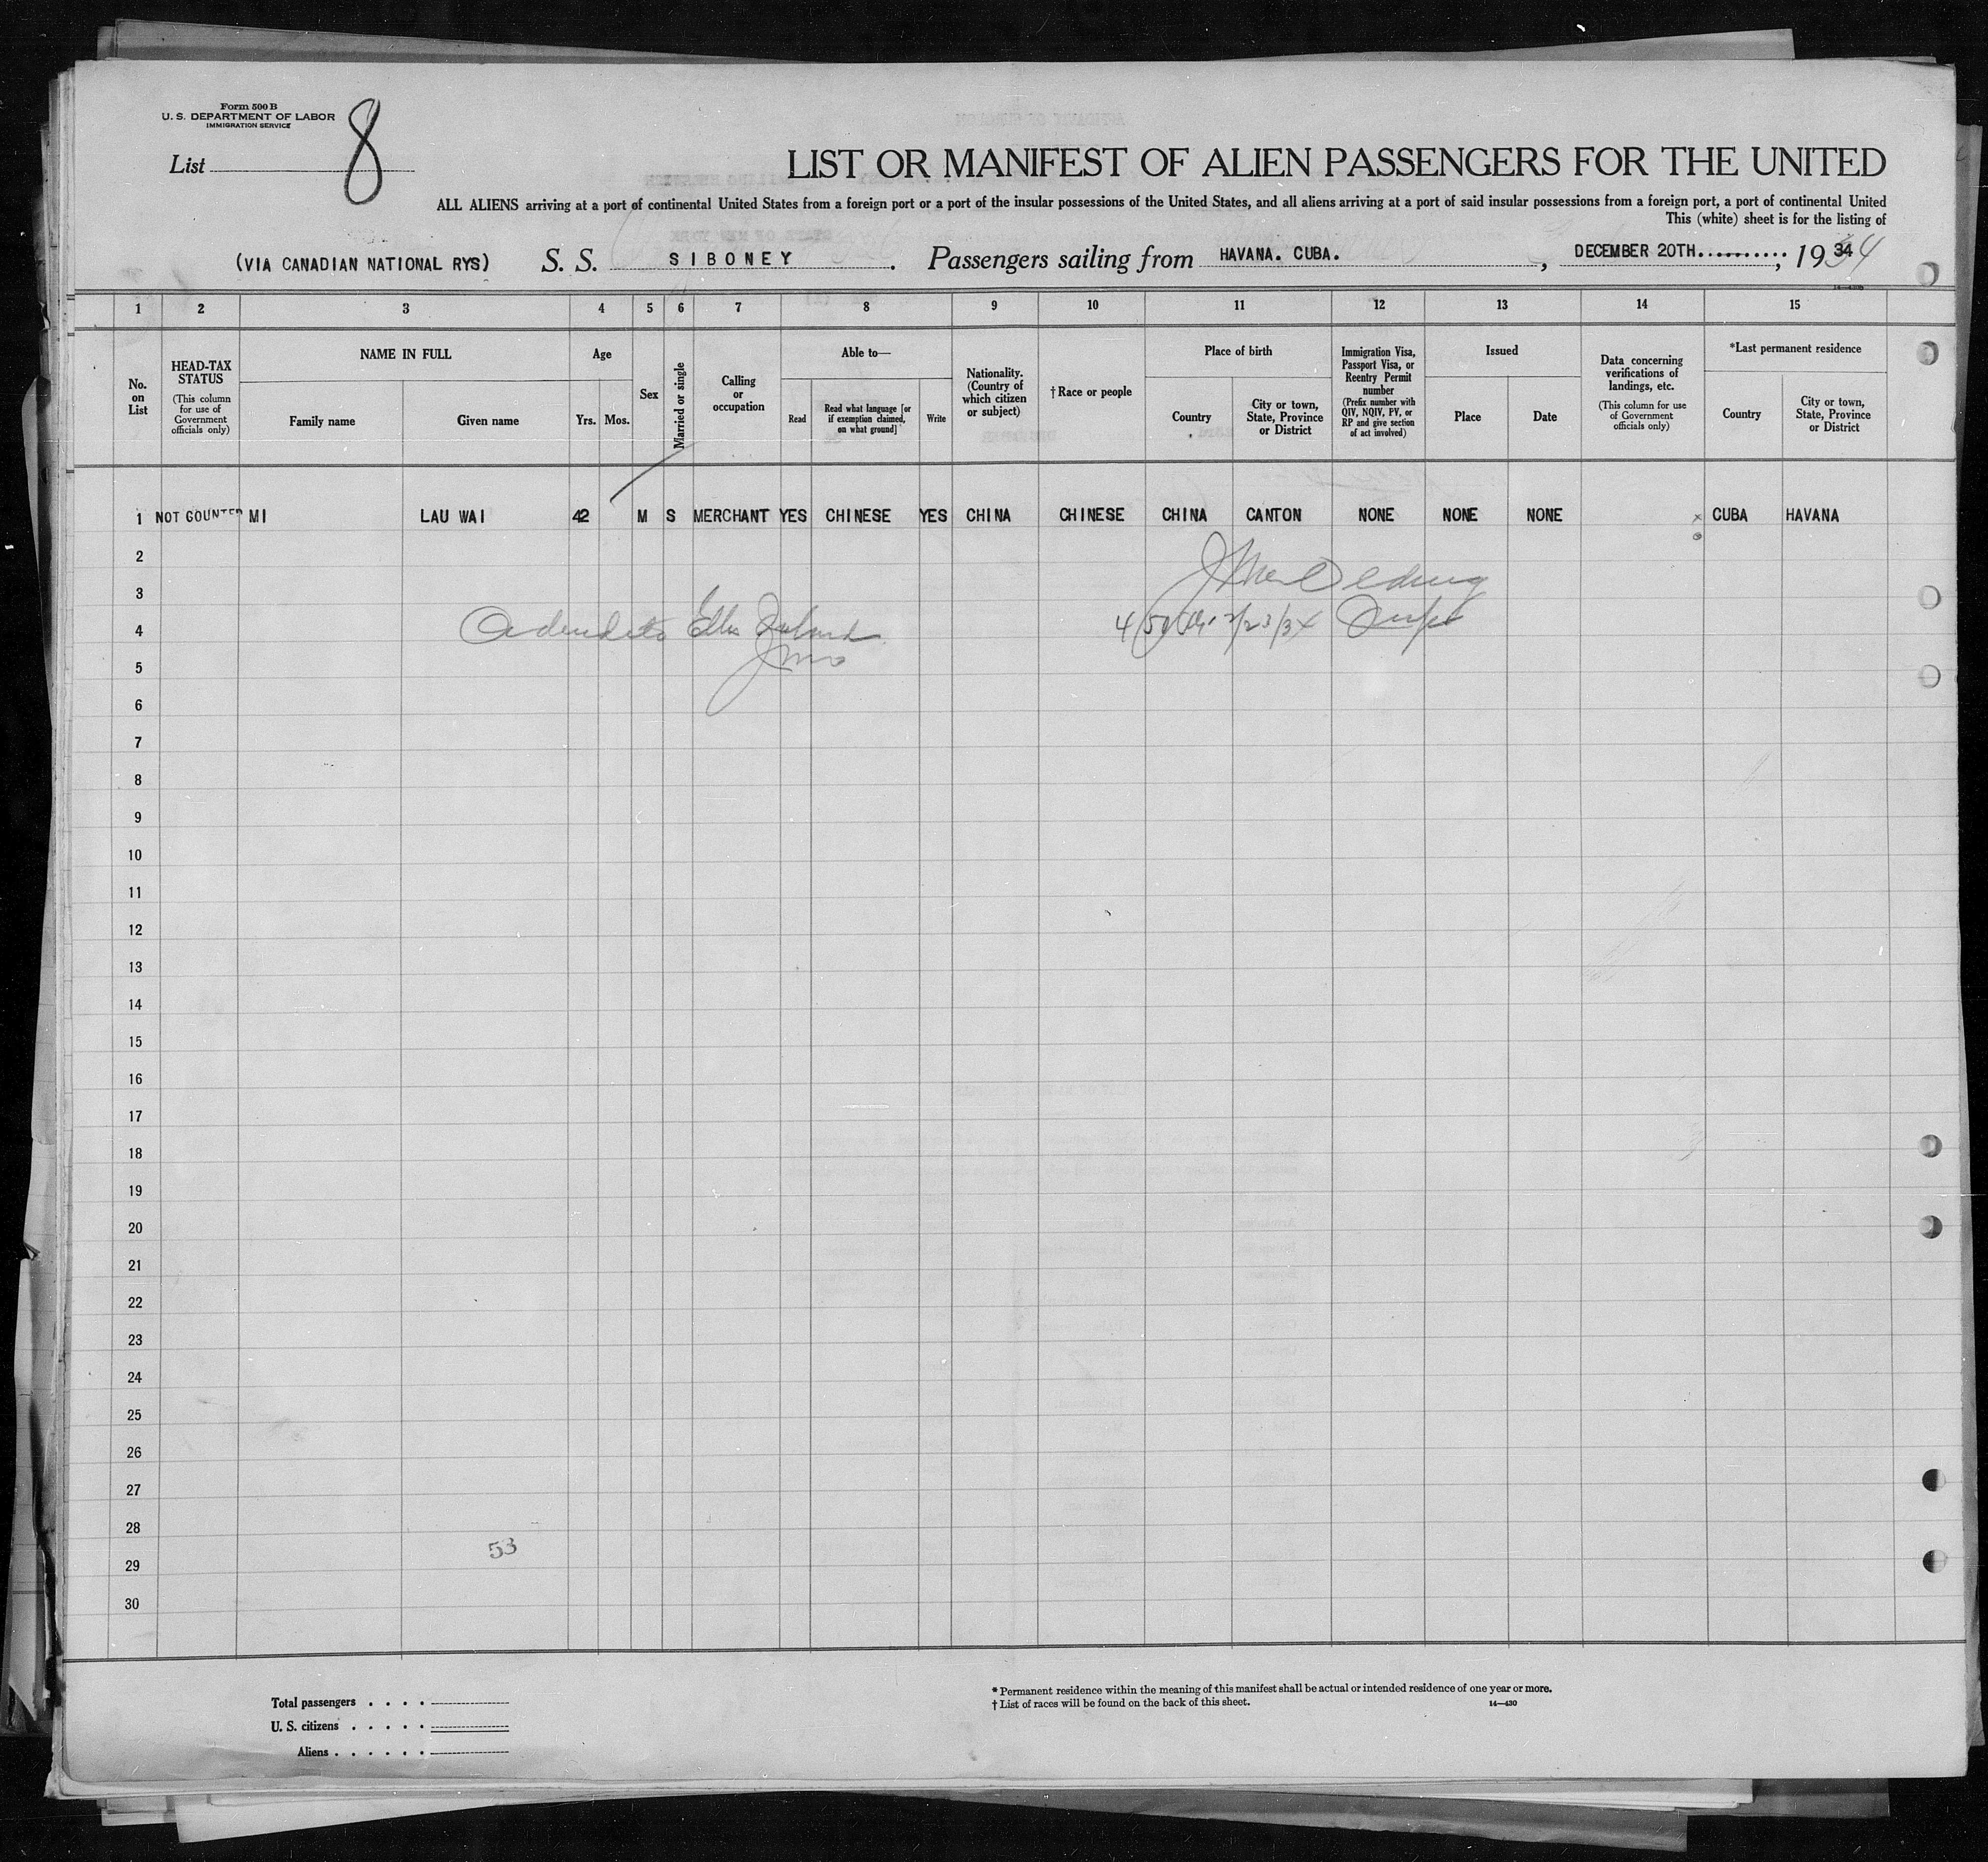 Form 500 B
U. S. DEPARTMENT OF LABOR
IMMIGRATION SERVICE
List 8
LIST OR MANIFEST OF ALIEN PASSENGERS FOR THE UNITED
ALL ALIENS arriving at a port of continental United States from a foreign port or a port of the insular possessions of the United States, and all aliens arriving at a port of said insular possessions from a foreign port, a port of continental United
This (white) sheet is for the listing of
(VIA CANADIAN NATIONAL RYS) S. S. SIBONEY. Passengers sailing from HAVANA. CUBA. , DECEMBER 20TH..........., 1934
1 2 3 4 5 6 7 8 9 10 11 12 13 14 15
No. on List
HEAD-TAX STATUS (This column for use of Government officials only)
NAME IN FULL
Family name
Given name
Age
Yrs. Mos.
Sex
Married or single
Calling or occupation
Able to—
Read
Read what language [or if exemption claimed, on what ground]
Write
Nationality. (Country of which citizen or subject)
† Race or people
Place of birth
Country
City or town, State, Province or District
Immigration Visa, Passport Visa, or Reentry Permit number (Prefix number with QIV, NQIV, PV, or RP and give section of act involved)
Issued
Place
Date
Data concerning verifications of landings, etc. (This column for use of Government officials only)
*Last permanent residence
Country
City or town, State, Province or District
1 NOT COUNTED MI LAU WAI 42 M S MERCHANT YES CHINESE YES CHINA CHINESE CHINA CANTON NONE NONE NONE x CUBA HAVANA
2
3
4 Ellis Island
5
6
7
8
9
10
11
12
13
14
15
16
17
18
19
20
21
22
23
24
25
26
27
28
53
29
30
Total passengers . . . .
U. S. citizens . . . . .
Aliens . . . . . .
* Permanent residence within the meaning of this manifest shall be actual or intended residence of one year or more.
† List of races will be found on the back of this sheet. 14—430